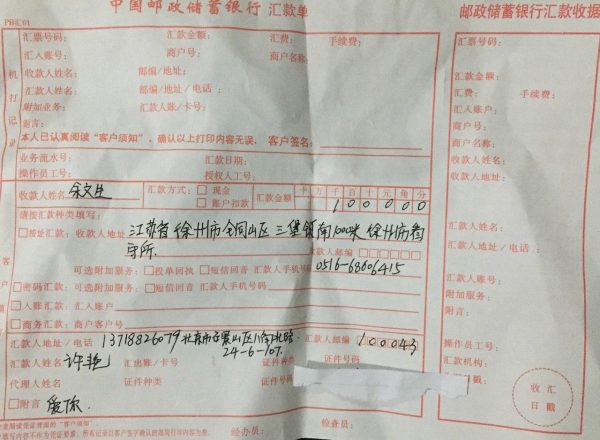 中国邮政储蓄银行 汇款单
邮政储蓄银行汇款收据
汇票号码: 汇款金额: 汇费: 手续费:
汇入账号: 商户号: 商户名称:
收款人姓名: 邮编/地址:
汇款人姓名: 邮编/地址/电话:
附加业务: 汇款人账/卡号:
附言:
本人已认真阅读“客户须知”,确认以上打印内容无误,客户签名:
业务流水号: 汇款日期:
操作员工号: 授权人工号:
机打记录
收款人姓名 余文生 汇款方式: 现金 账户扣款 汇款金额 十万千百十元角分
100000
请按汇款种类填写:
按址汇款: 收款人地址 江苏省徐州市铜山区三堡镇南1000米 徐州市看
守所. 收款人邮编
可选附加服务: 投单回执 短信回音 汇款人手机号 0516-68606415
密码汇款: 可选附加服务: 短信回音 汇款人手机号码
入账汇款: 汇入账户
商务汇款: 商户客户号
汇款人地址/电话 13718826079 北京市石景山区 汇款人邮编 100043
24-6-107.
汇款人姓名 许艳 汇出账/卡号 证件种类 证件号码
代理人姓名 证件种类 证件号码
附言 爱你.
经办员: 检查员:
汇票号码:
汇款金额:
汇费: 手续费:
汇入账户:
商户号:
商户名称:
收款人姓名:
收款人地址:
汇款人姓名:
汇款人地址/电话:
汇款人账号:
附加服务:
附言:
操作员工号:
汇款机构:
汇款日期:
收汇
日戳